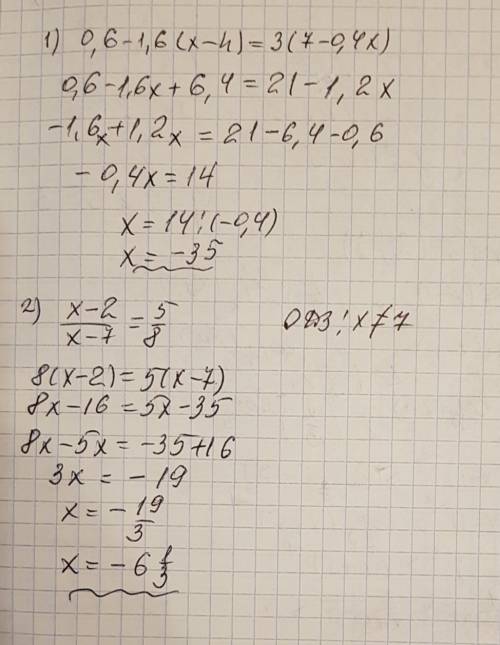 1) 0,6-1,6(x-4)=3(7-0,4x)
0,6-1,6x+6,4=21-1,2x
-1,6x+1,2x=21-6,4-0,6
-0,4x=14
x=14:(-0,4)
x=-35
2) (x-2)/(x-7)=5/8 ОДЗ: x≠7
8(x-2)=5(x-7)
8x-16=5x-35
8x-5x=-35+16
3x=-19
x=-19/3
x=-6 1/3